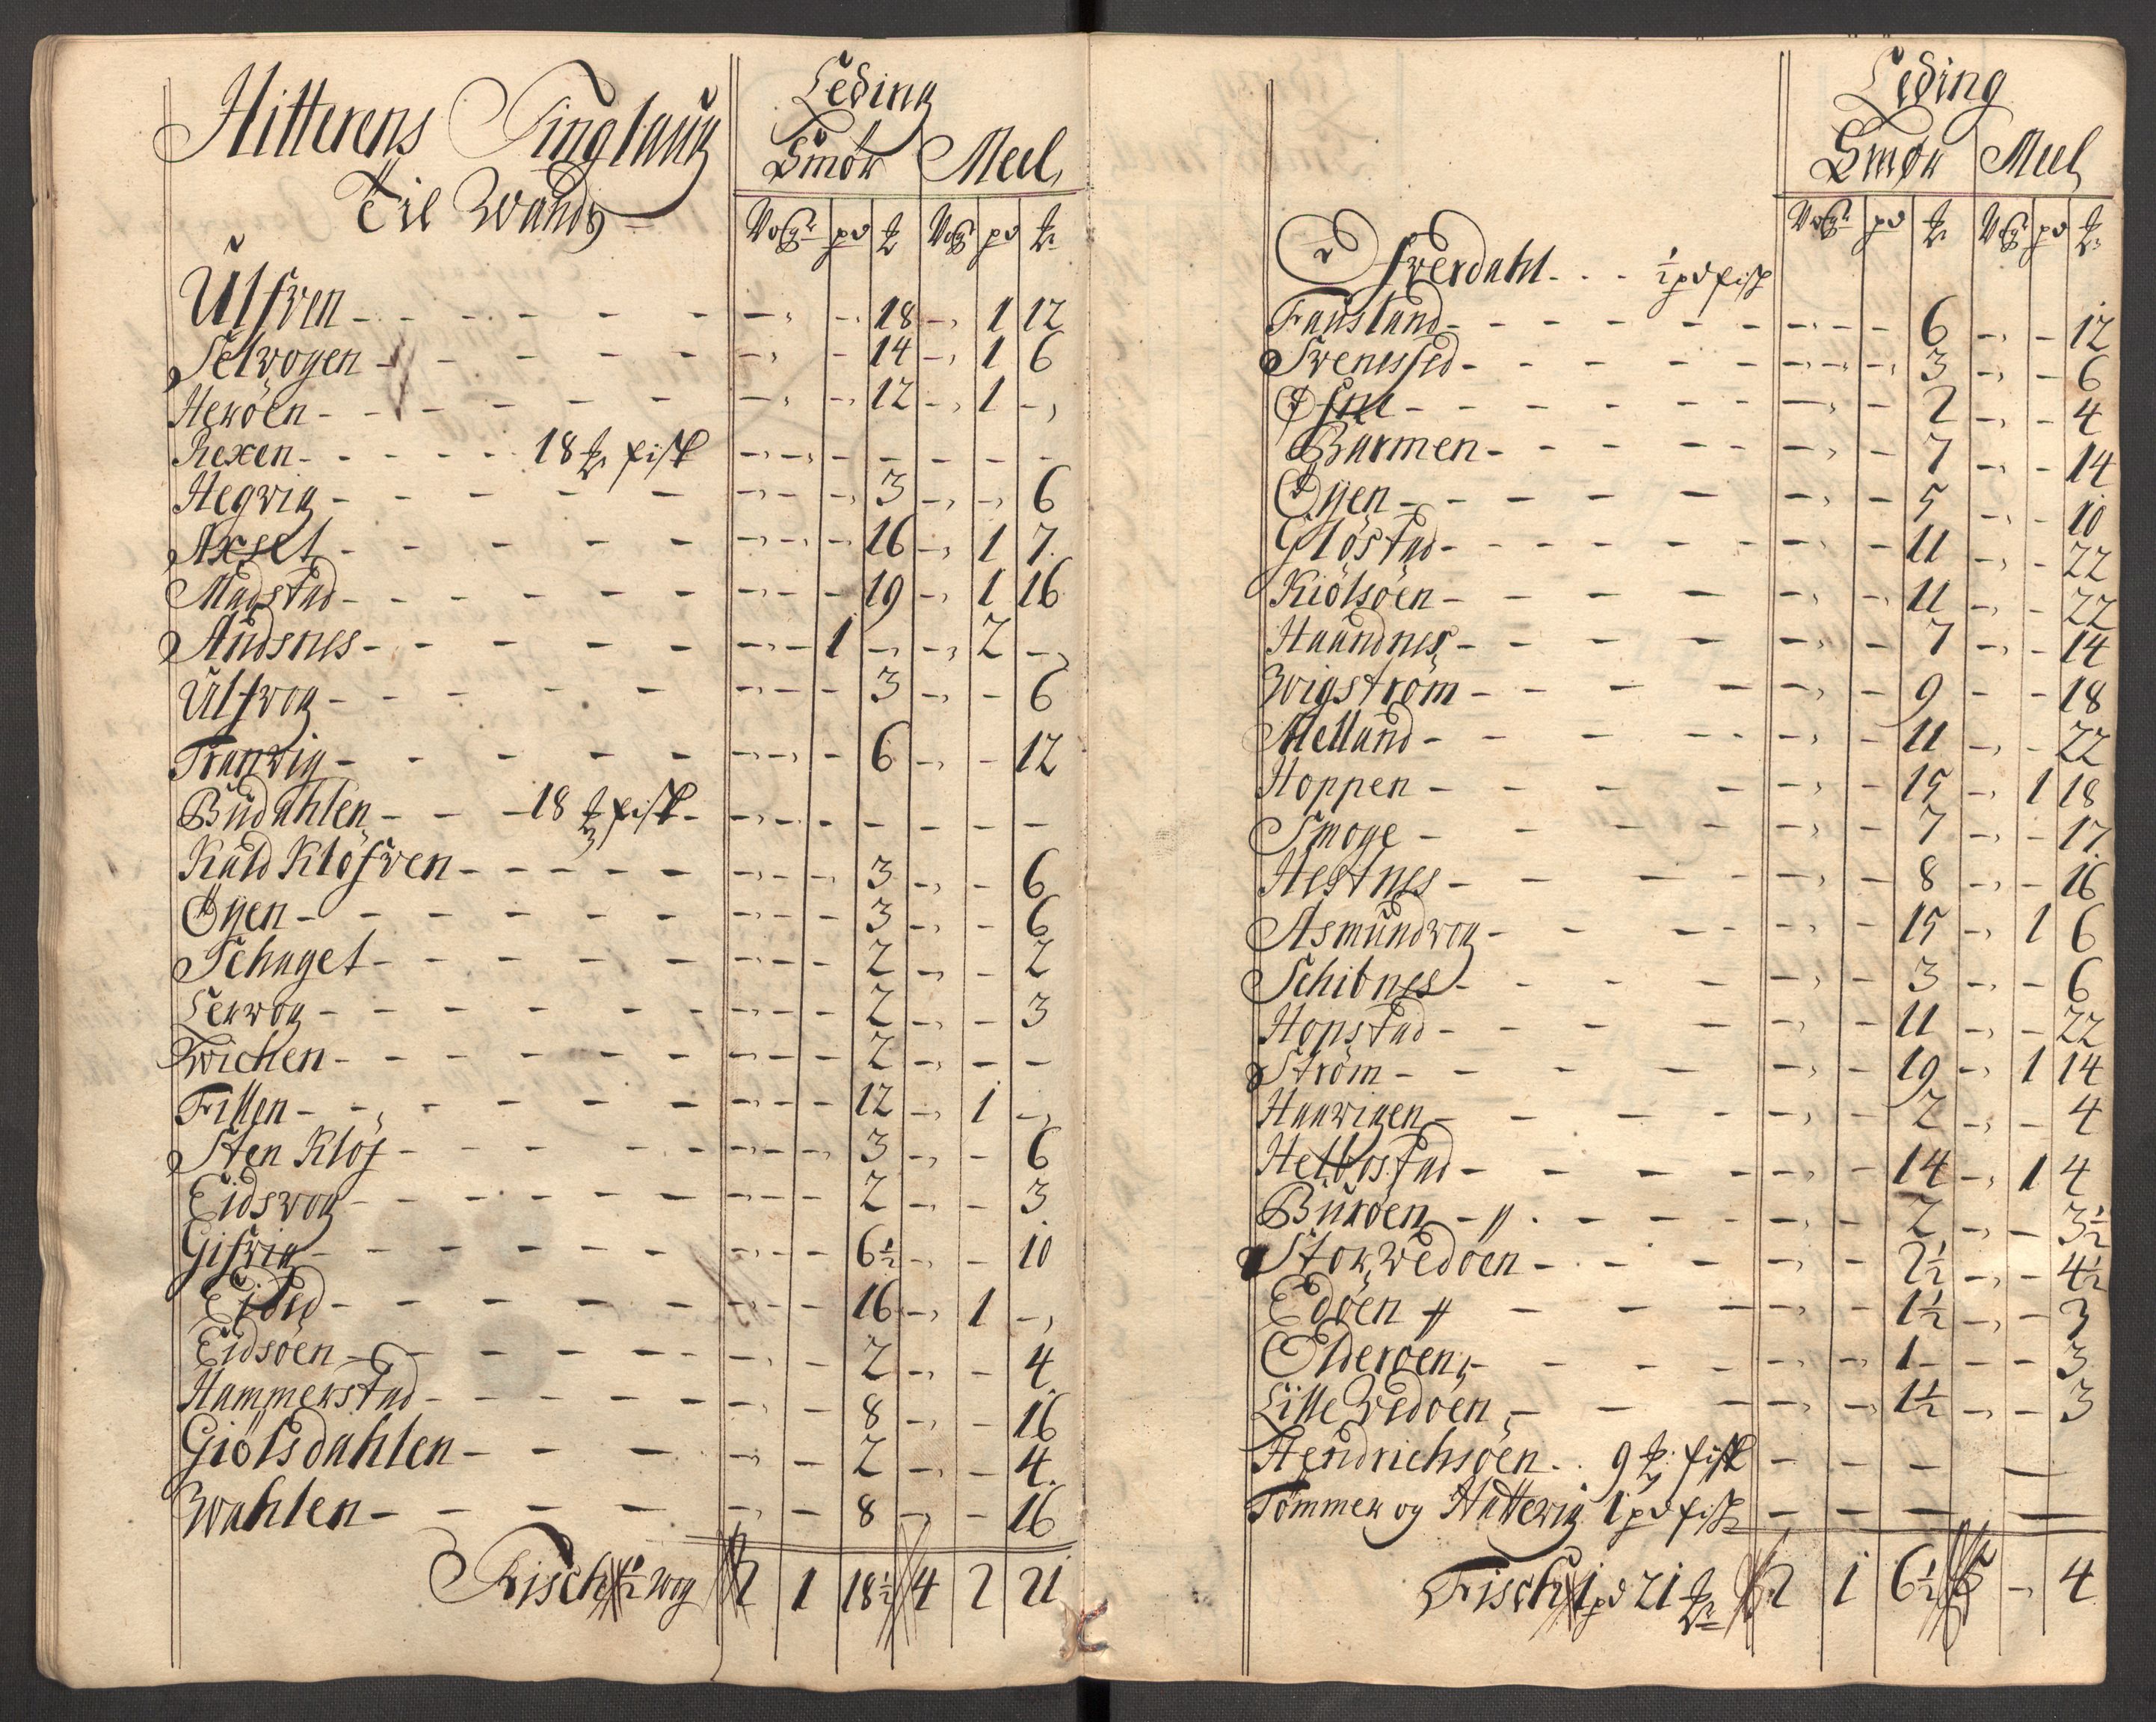 Hitterens Tinglaug
Til Wands
Leding
Smör Meel
Wog pd ℔ Wog pd ℔
Ulfven - - - 18 - 1 12
Selwogen - - - 14 - 1 6
Heröen - - - 12 - 1 -
Rexen - 18 ℔ fisk - - - - - -
Hegwig - - - 3 - - 6
Axset - - - 16 - 1 7
Magstad - - - 19 - 1 16
Andsnes - - 1 - - 2 -
Ulfwog - - - 3 - - 6
Tranwig - - - 6 - - 12
Budahlen - 18 ℔ fisk - - - - - -
Kald Klöfven - - - 3 - - 6
Öyen - - - 3 - - 6
Schaget - - - 2 - - 2
Lerwog - - - 2 - - 3
Wichen - - - 2 - - -
Fillen - - - 12 - 1 -
Sten Klöf - - - 3 - - 6
Eidswog - - - 2 - - 3
Gifwig - - - 6½ - - 10
Eide - - - 16 - 1 -
Eidsöen - - - 2 - - 4
Hammerstad - - - 8 - - 16
Giölsdahlen - - - 2 - - 4
Wahlen - - - 8 - - 16
Fisch ½ wog 2 1 18½ 4 2 21
Leding
Smör Meel
Wog pd ℔ Wog pd ℔
Öfverdahl - ½ pd fisk
Fausland - - - 6 - - 12
Svenessed - - - 3 - - 6
Öfne - - - 2 - - 4
Barmen - - - 7 - - 14
Öyen - - - 5 - - 10
Glöstad - - - 11 - - 22
Kiölsöen - - - 11 - - 22
Haundnes - - - 7 - - 14
Wigström - - - 9 - - 18
Melland - - - 11 - - 22
Hoppen - - - 15 - 1 18
Smoge - - - 7 - - 17
Hestnes - - - 8 - - 16
Asmundwog - - - 15 - 1 6
Schibnes - - - 3 - - 6
Hopstad - - - 11 - - 22
Ström - - - 19 - 1 14
Haawigen - - - 2 - - 4
Helbostad - - - 14 - 1 4
Buröen - - - 2 - - 3½
Stor Wedöen - - - 2½ - - 4½
Edöen - - - 1½ - - 3
Olderöen - - - 1 - - 3
Lille Wedöen - - - 1½ - - 3
Hendrichsöen - 9 ℔ fisk - - - -
Tömmer og Hattewig 1 pd fisk - - - -
Fisch 1 pd 21 ℔ 2 1 6½ 5 - 4